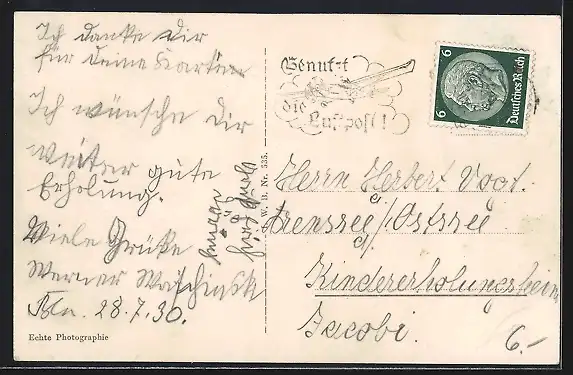 Ich danke dir
für deine Karten
Ich wünsche dir
weiter gute
Erholung.
Viele Grüße
Werner
Bln. 28.7.30.
Echte Photographie
W. B. Nr. 535.
Benutzt
die
Luftpost!
6 6
Deutsches Reich
Herrn Herbert Vogt.
/Ostsee
Kindererholungsheim
Jacobi.
6.-